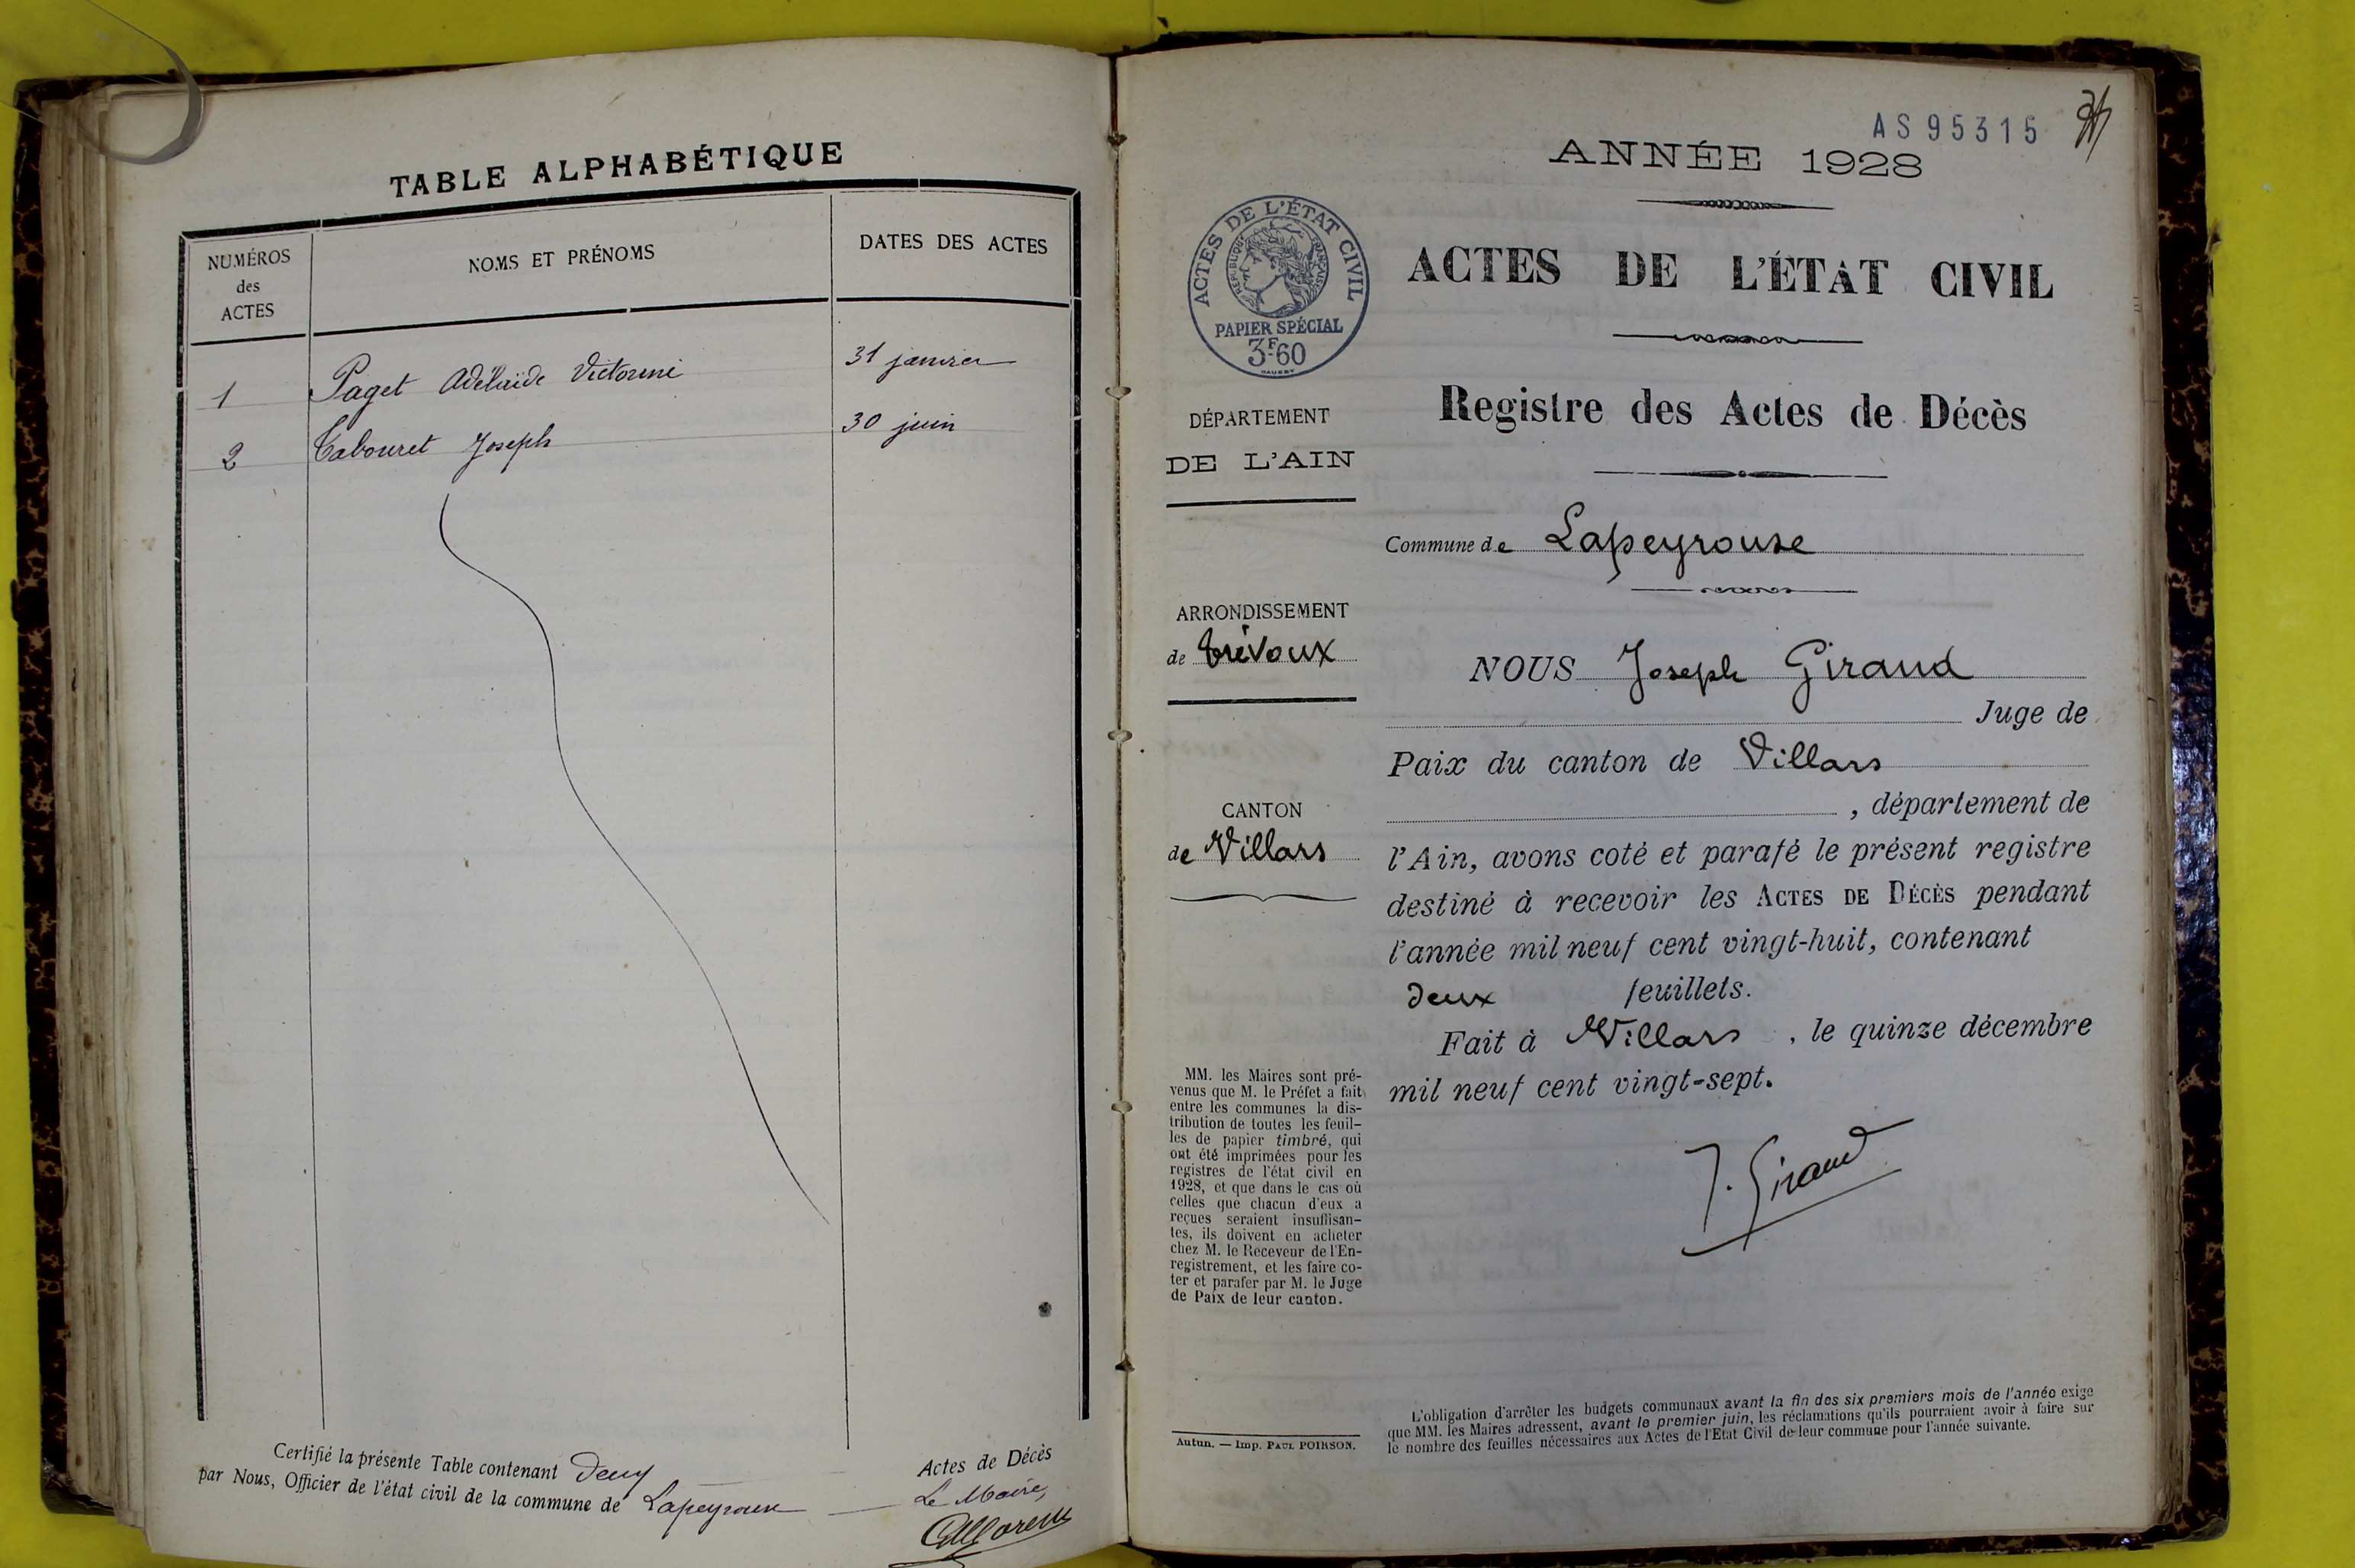 TABLE ALPHABÉTIQUE
NUMÉROS
des
ACTES
NOMS ET PRÉNOMS
DATES DES ACTES
1 Paget Adélaïde Victorine 31 janvier
2 Tabouret Joseph 30 juin
Certifié la présente Table contenant deux Actes de Décès
par Nous, Officier de l'état civil de la commune de Lapeyrouse
Le Maire,
AS 95315
ANNÉE 1928
ACTES DE L'ÉTAT CIVIL
RÉPUBLIQUE FRANÇAISE
PAPIER SPÉCIAL
3F60
ACTES DE L'ÉTAT CIVIL
Registre des Actes de Décès
DÉPARTEMENT
DE L'AIN
Commune de Lapeyrouse
ARRONDISSEMENT
de Trévoux
CANTON
de Villars
NOUS Joseph Giraud
Juge de
Paix du canton de Villars
, département de
l'Ain, avons coté et parafé le présent registre
destiné à recevoir les ACTES DE DÉCÈS pendant
l'année mil neuf cent vingt-huit, contenant
deux feuillets.
Fait à Villars, le quinze décembre
mil neuf cent vingt-sept.
J. Giraud
MM. les Maires sont pré-
venus que M. le Préfet a fait
entre les communes la dis-
tribution de toutes les feuil-
les de papier timbré, qui
ont été imprimées pour les
registres de l'état civil en
1928, et que dans le cas où
celles que chacun d'eux a
reçues seraient insuffisan-
tes, ils doivent en acheter
chez M. le Receveur de l'En-
registrement, et les faire co-
ter et parafer par M. le Juge
de Paix de leur canton.
Autun. — Imp. PAUL POIRSON.
L'obligation d'arrêter les budgets communaux avant la fin des six premiers mois de l'année exige
que MM. les Maires adressent, avant le premier juin, les réclamations qu'ils pourraient avoir à faire sur
le nombre des feuilles nécessaires aux Actes de l'Etat Civil de leur commune pour l'année suivante.